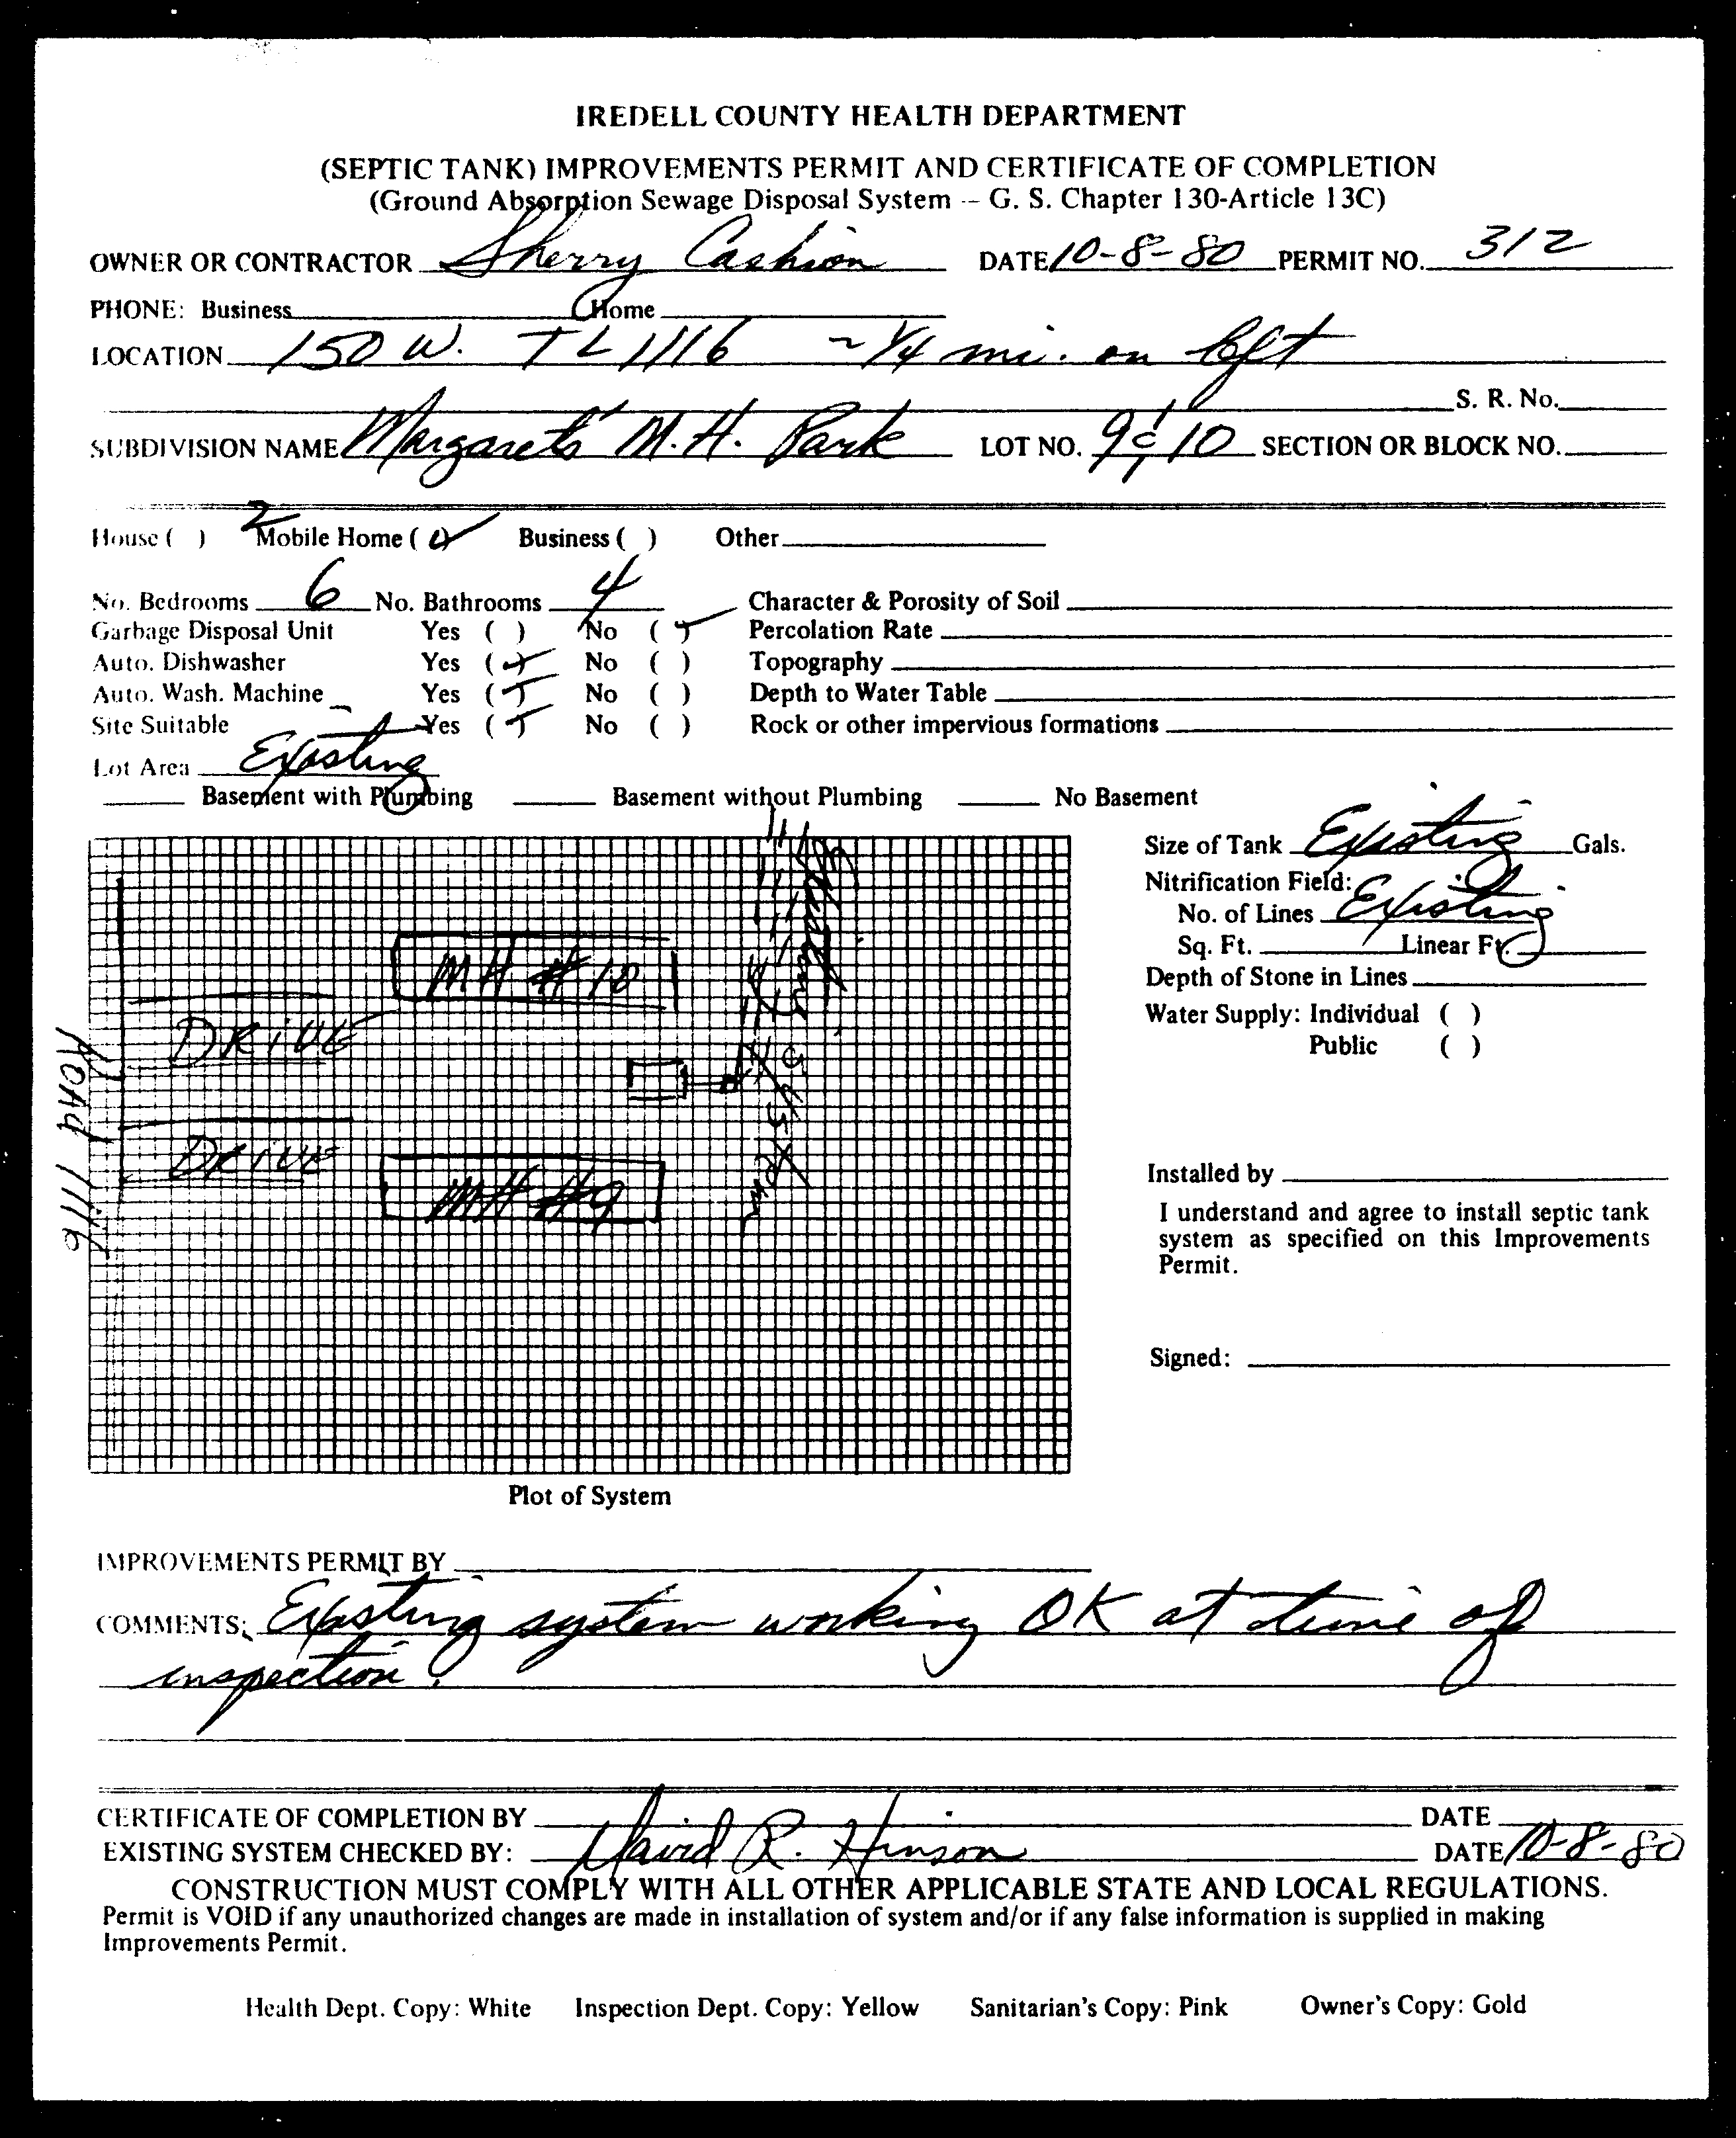 IREDELL COUNTY HEALTH DEPARTMENT
(SEPTIC TANK) IMPROVEMENTS PERMIT AND CERTIFICATE OF COMPLETION
(Ground Absorption Sewage Disposal System -- G. S. Chapter 130-Article 13C)
OWNER OR CONTRACTOR Sherry Cashion DATE 10-8-80 PERMIT NO. 312
PHONE: Business Home
LOCATION 150 W. TL 1116 ~ 1/4 mi. on left
S. R. No.
SUBDIVISION NAME Margaret's M.H. Park LOT NO. 9 & 10 SECTION OR BLOCK NO.
House ( ) 2 Mobile Home (✓) Business ( ) Other
No. Bedrooms 6 No. Bathrooms 4 Character & Porosity of Soil
Garbage Disposal Unit Yes ( ) No (✓) Percolation Rate
Auto. Dishwasher Yes (✓) No ( ) Topography
Auto. Wash. Machine Yes (✓) No ( ) Depth to Water Table
Site Suitable Yes (✓) No ( ) Rock or other impervious formations
Lot Area Existing
Basement with Plumbing Basement without Plumbing No Basement
Size of Tank Existing Gals.
Nitrification Field:
No. of Lines Existing
Sq. Ft. Linear Ft.
Depth of Stone in Lines
Water Supply: Individual ( )
Public ( )
Installed by
I understand and agree to install septic tank
system as specified on this Improvements
Permit.
Signed:
MH #10
DRIVE
DRIVE
MH #9
Road 1116
Existing System
Plot of System
IMPROVEMENTS PERMIT BY
COMMENTS: Existing system working OK at time of
inspection.
CERTIFICATE OF COMPLETION BY DATE
EXISTING SYSTEM CHECKED BY: David R. Hinson DATE 10-8-80
CONSTRUCTION MUST COMPLY WITH ALL OTHER APPLICABLE STATE AND LOCAL REGULATIONS.
Permit is VOID if any unauthorized changes are made in installation of system and/or if any false information is supplied in making
Improvements Permit.
Health Dept. Copy: White Inspection Dept. Copy: Yellow Sanitarian's Copy: Pink Owner's Copy: Gold